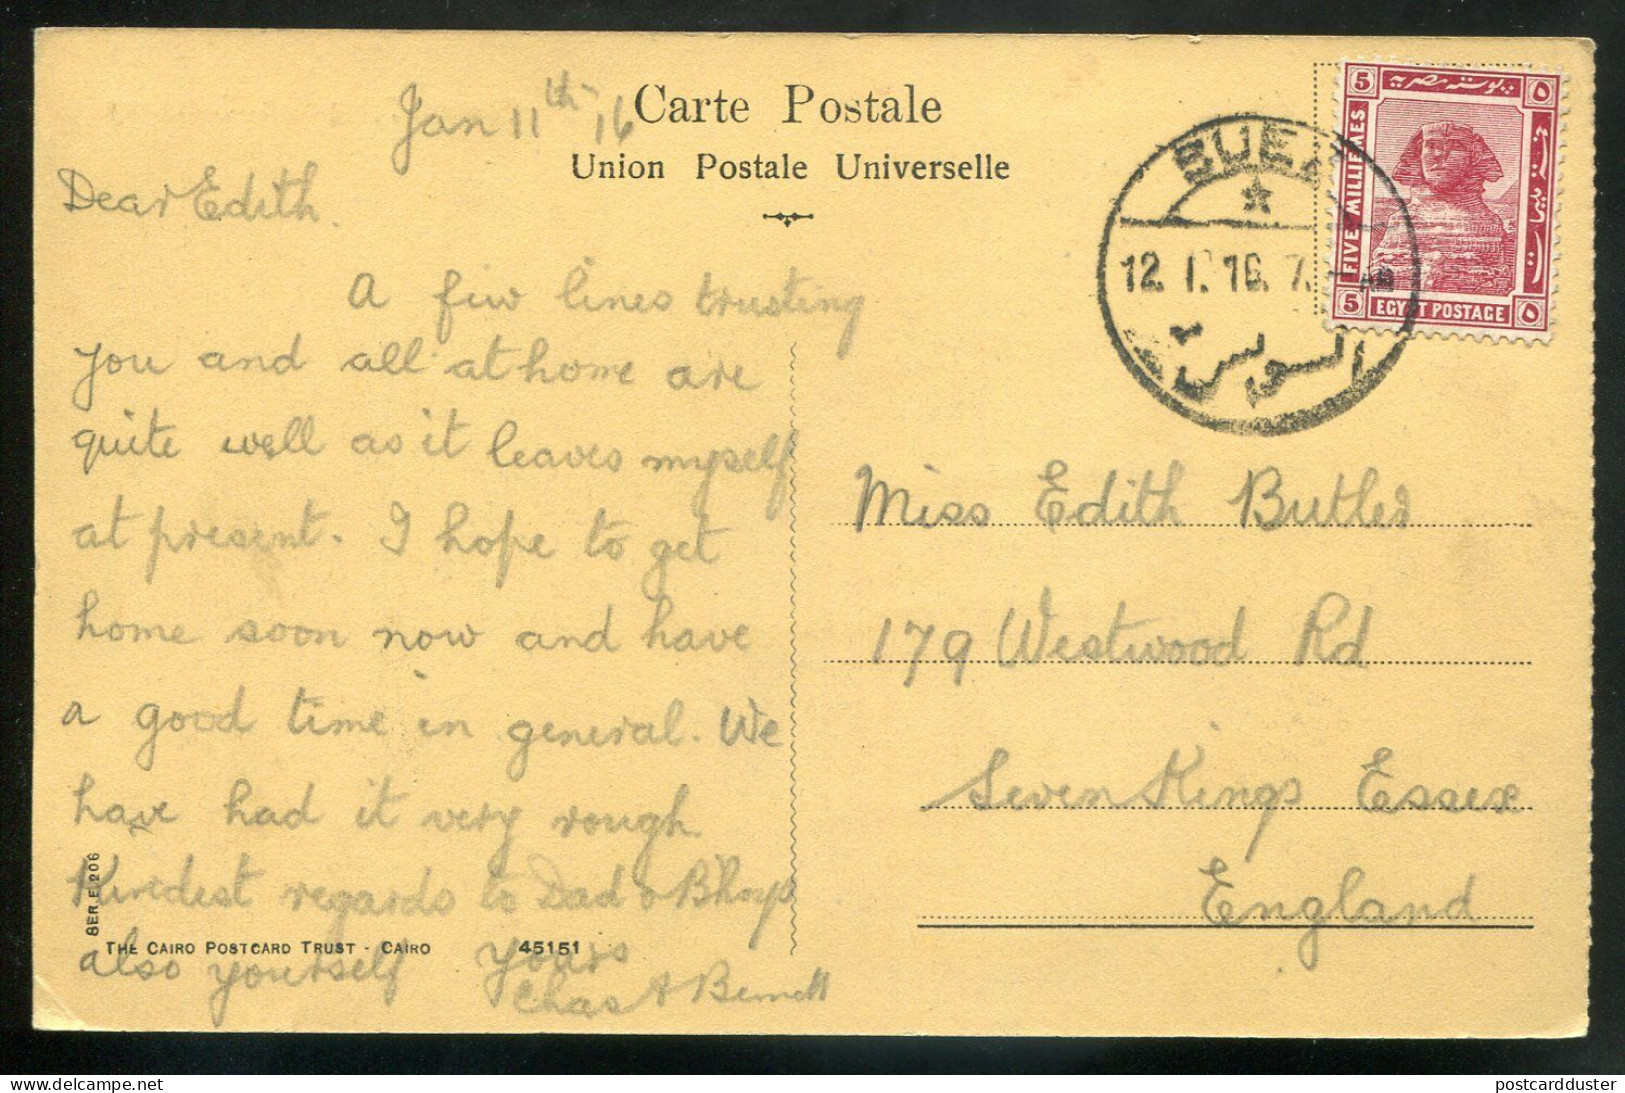 Carte Postale
Union Postale Universelle
Jan 11th 16
Dear Edith.
A few lines trusting
you and all at home are
quite well as it leaves myself
at present. I hope to get
home soon now and have
a good time in general. We
have had it very rough.
Kindest regards to Dad &
also yourself Yours
Chas A
SER. E 206
THE CAIRO POSTCARD TRUST - CAIRO 45151
Miss Edith Butler
179 Westwood Rd
Seven Kings Essex
England
SUEZ
12. I. 16. 7.
السويس
5 بوستة مصرية ٥
FIVE MILLIEMES
5 EGYPT POSTAGE ٥
postcardduster